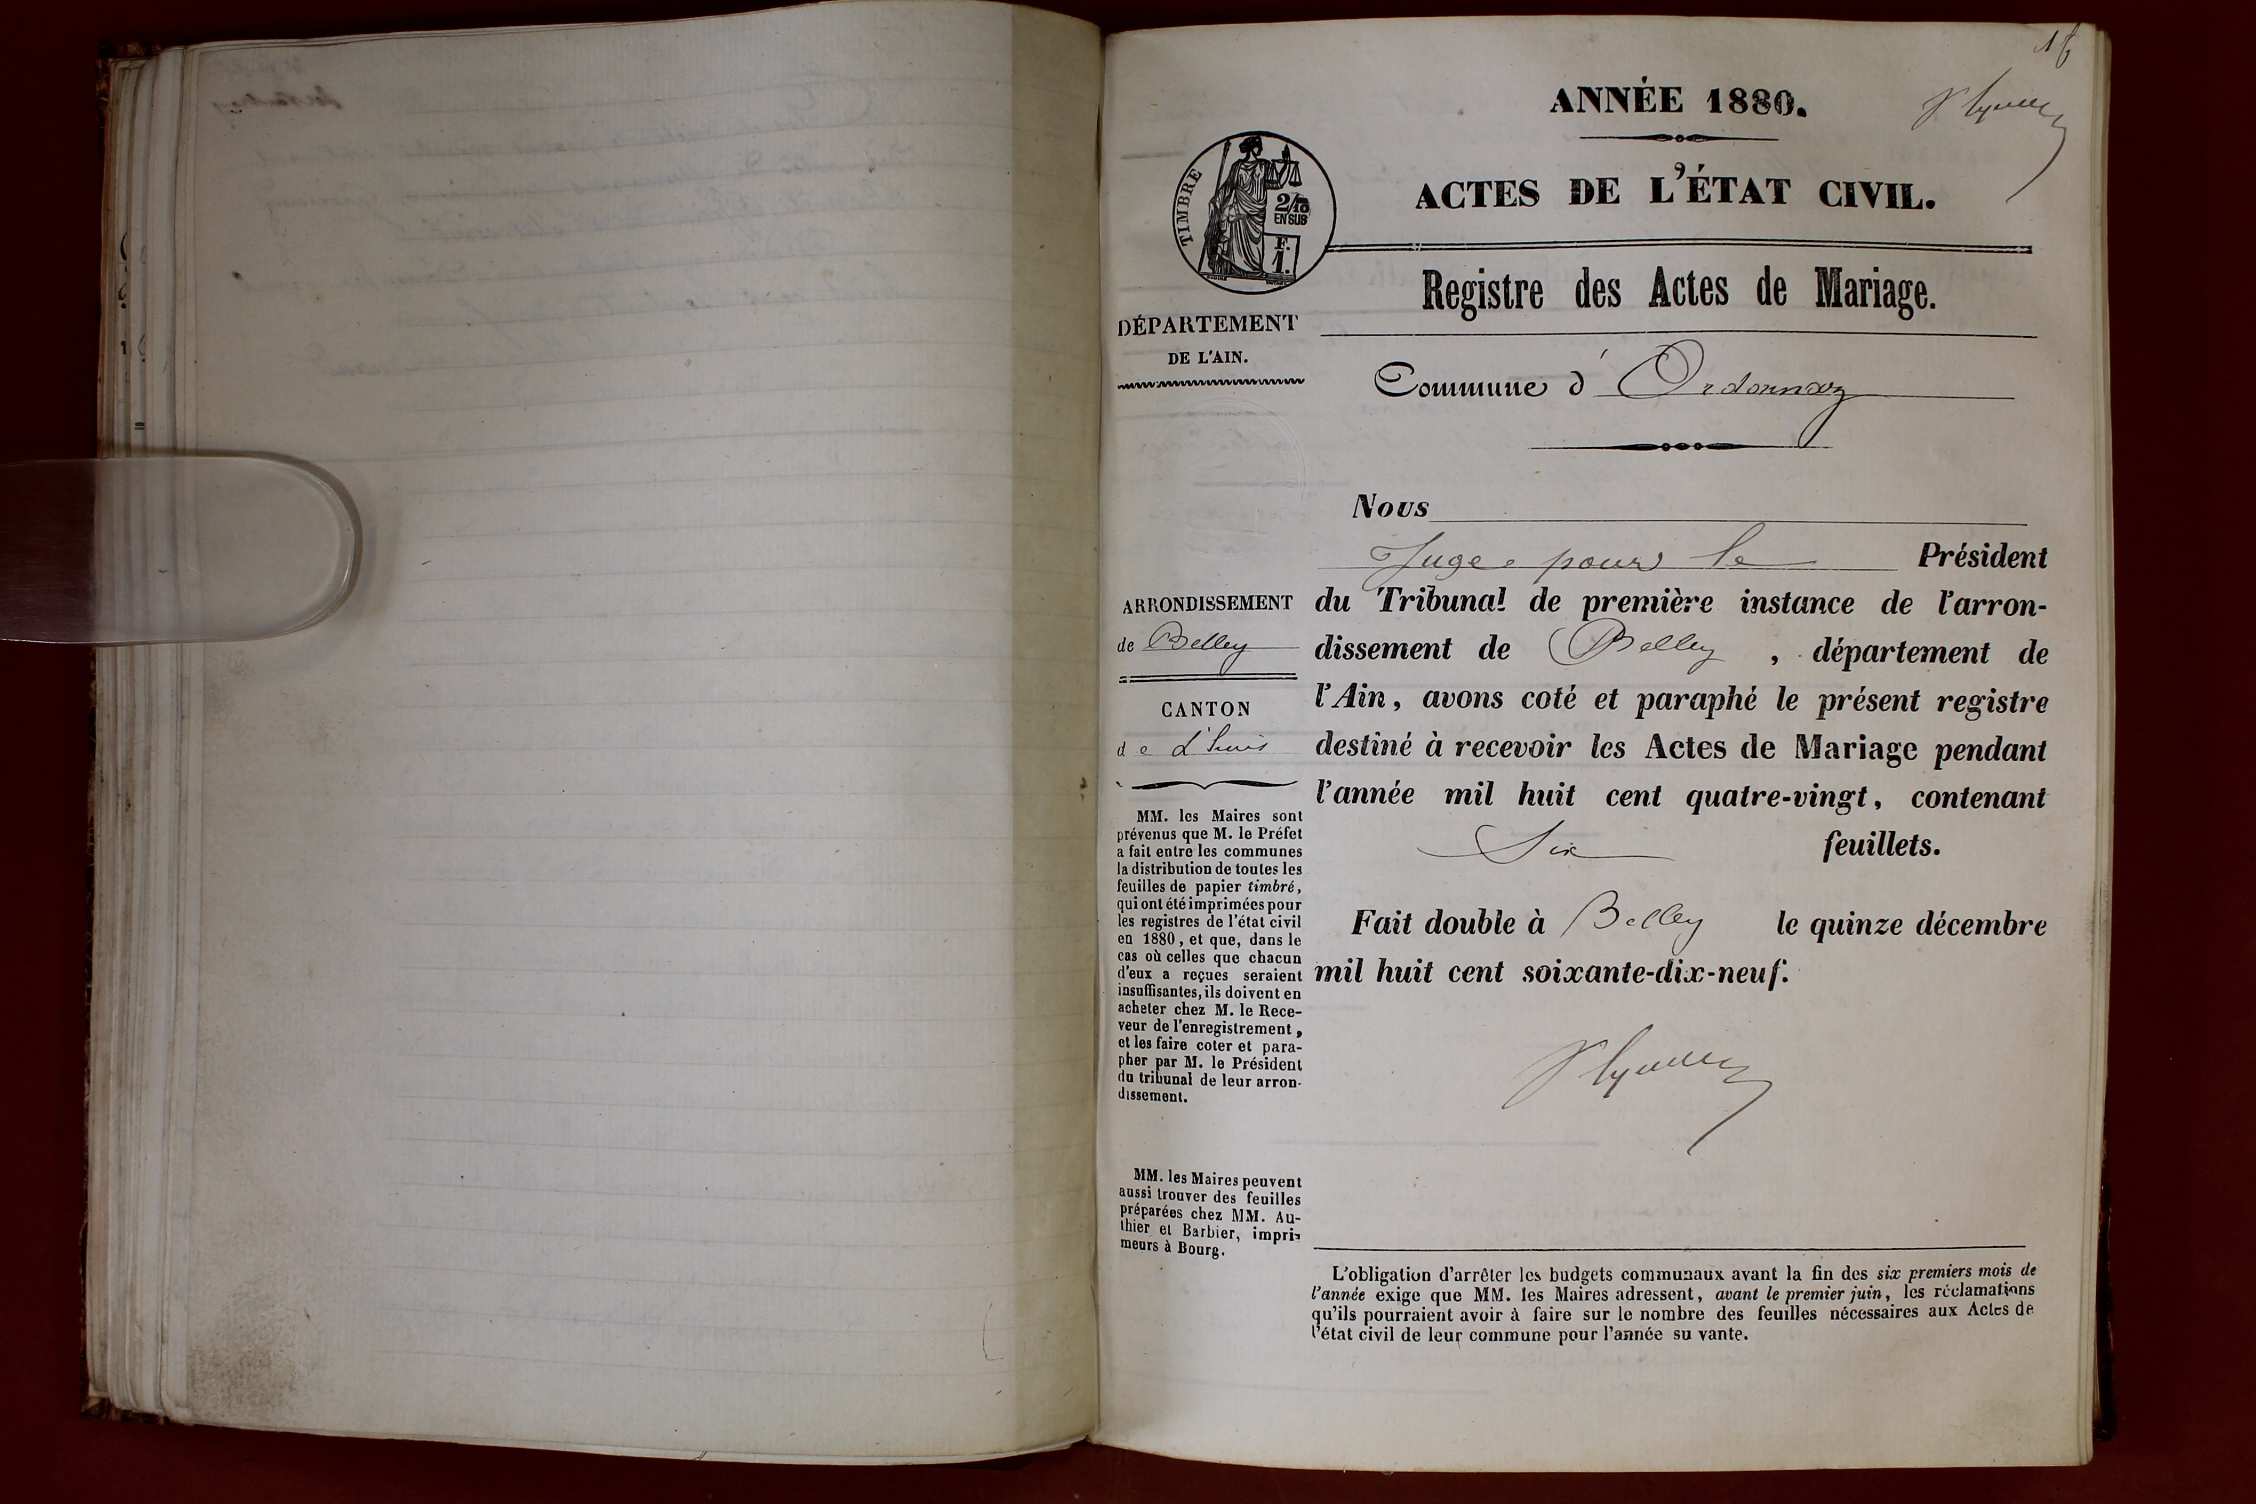 ANNÉE 1880.
ACTES DE L'ÉTAT CIVIL.
TIMBRE
2/10
EN SUS
F.
1.
Registre des Actes de Mariage.
DÉPARTEMENT
DE L'AIN.
Commune d'Ordonnaz
Nous
Juge pour le Président
ARRONDISSEMENT
de Belley
CANTON
de L'huis
du Tribunal de première instance de l'arron-
dissement de Belley, département de
l'Ain, avons coté et paraphé le présent registre
destiné à recevoir les Actes de Mariage pendant
l'année mil huit cent quatre-vingt, contenant
Six feuillets.
Fait double à Belley le quinze décembre
mil huit cent soixante-dix-neuf.
MM. les Maires sont
prévenus que M. le Préfet
a fait entre les communes
la distribution de toutes les
feuilles de papier timbré,
qui ont été imprimées pour
les registres de l'état civil
en 1880, et que, dans le
cas où celles que chacun
d'eux a reçues seraient
insuffisantes, ils doivent en
acheter chez M. le Rece-
veur de l'enregistrement,
et les faire coter et para-
pher par M. le Président
du tribunal de leur arron-
dissement.
MM. les Maires peuvent
aussi trouver des feuilles
préparées chez MM. Au-
thier et Barbier, impri-
meurs à Bourg.
L'obligation d'arrêter les budgets communaux avant la fin des six premiers mois de
l'année exige que MM. les Maires adressent, avant le premier juin, les réclamations
qu'ils pourraient avoir à faire sur le nombre des feuilles nécessaires aux Actes de
l'état civil de leur commune pour l'année su vante.